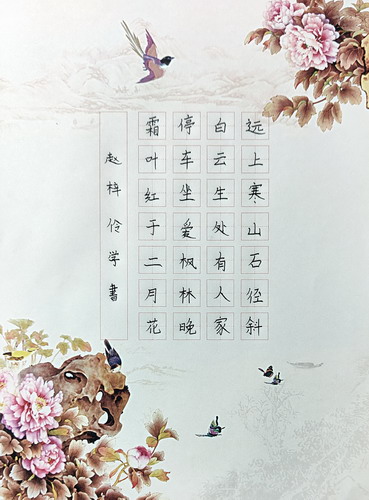 远上寒山石径斜
白云生处有人家
停车坐爱枫林晚
霜叶红于二月花
赵梓伶学书